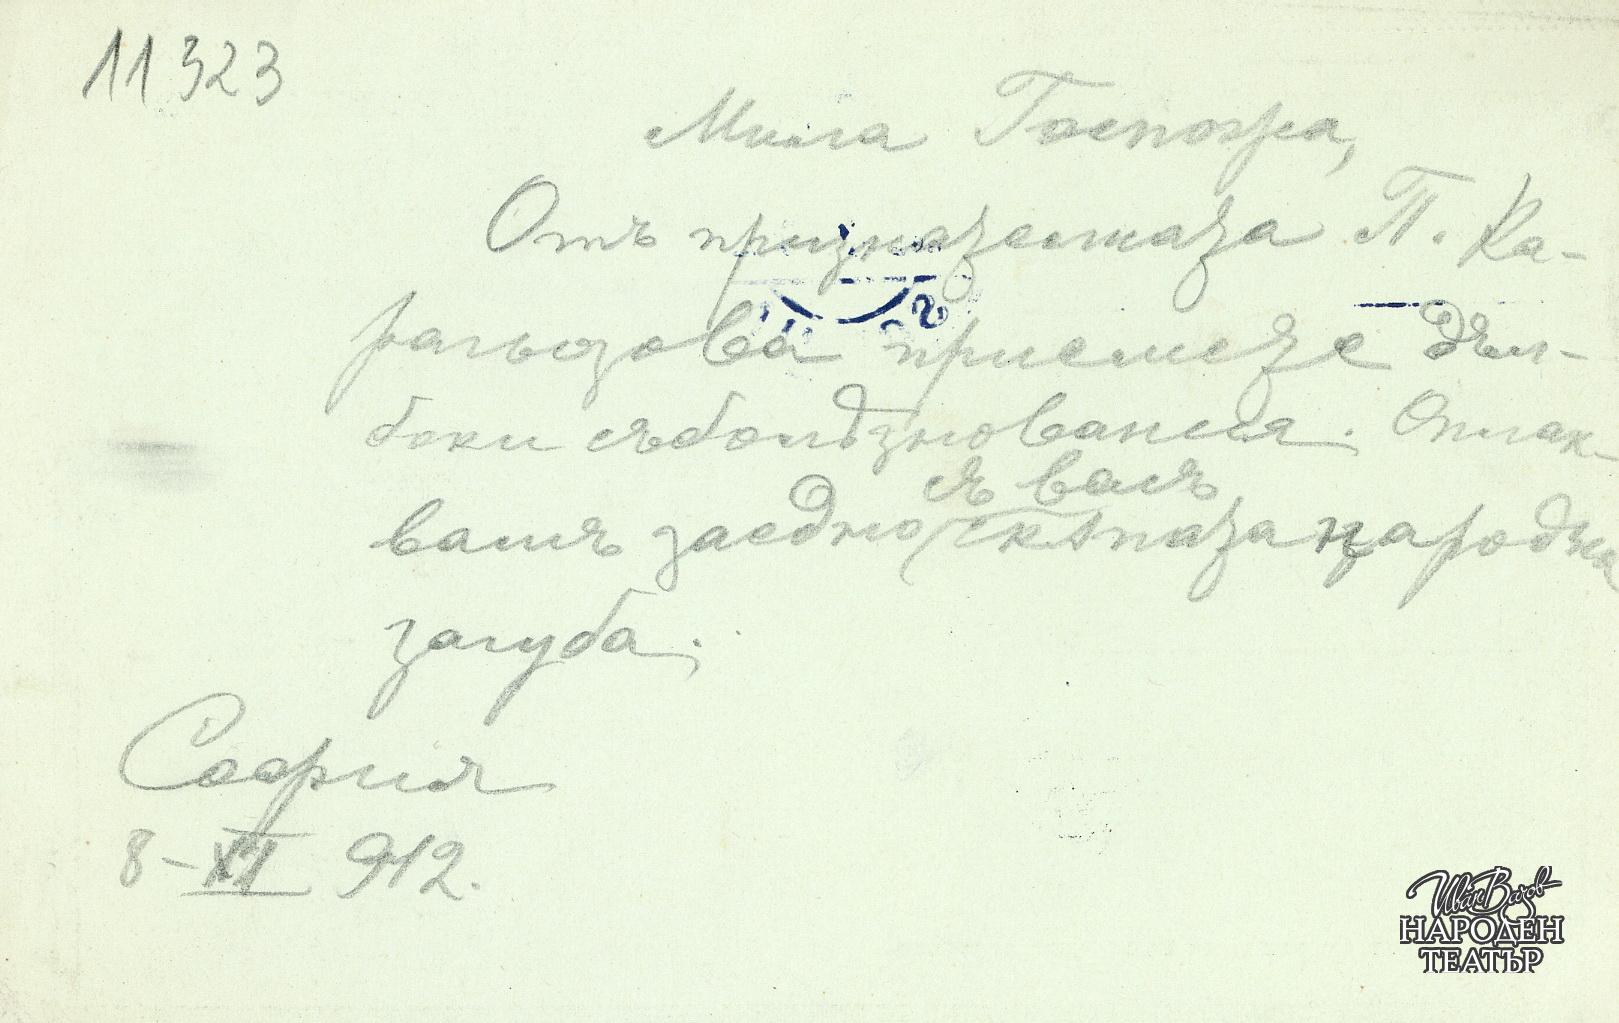 11323
Мила Госпожа,
Отъ признателната П. Ка-
рагьозова приемете дъл-
боки съболѣзнования. Оплак-
вамъ заедно съ васъ
скѫпата народна
загуба.
София
8-XI 912.
Иван Вазов
НАРОДЕН
ТЕАТЪР